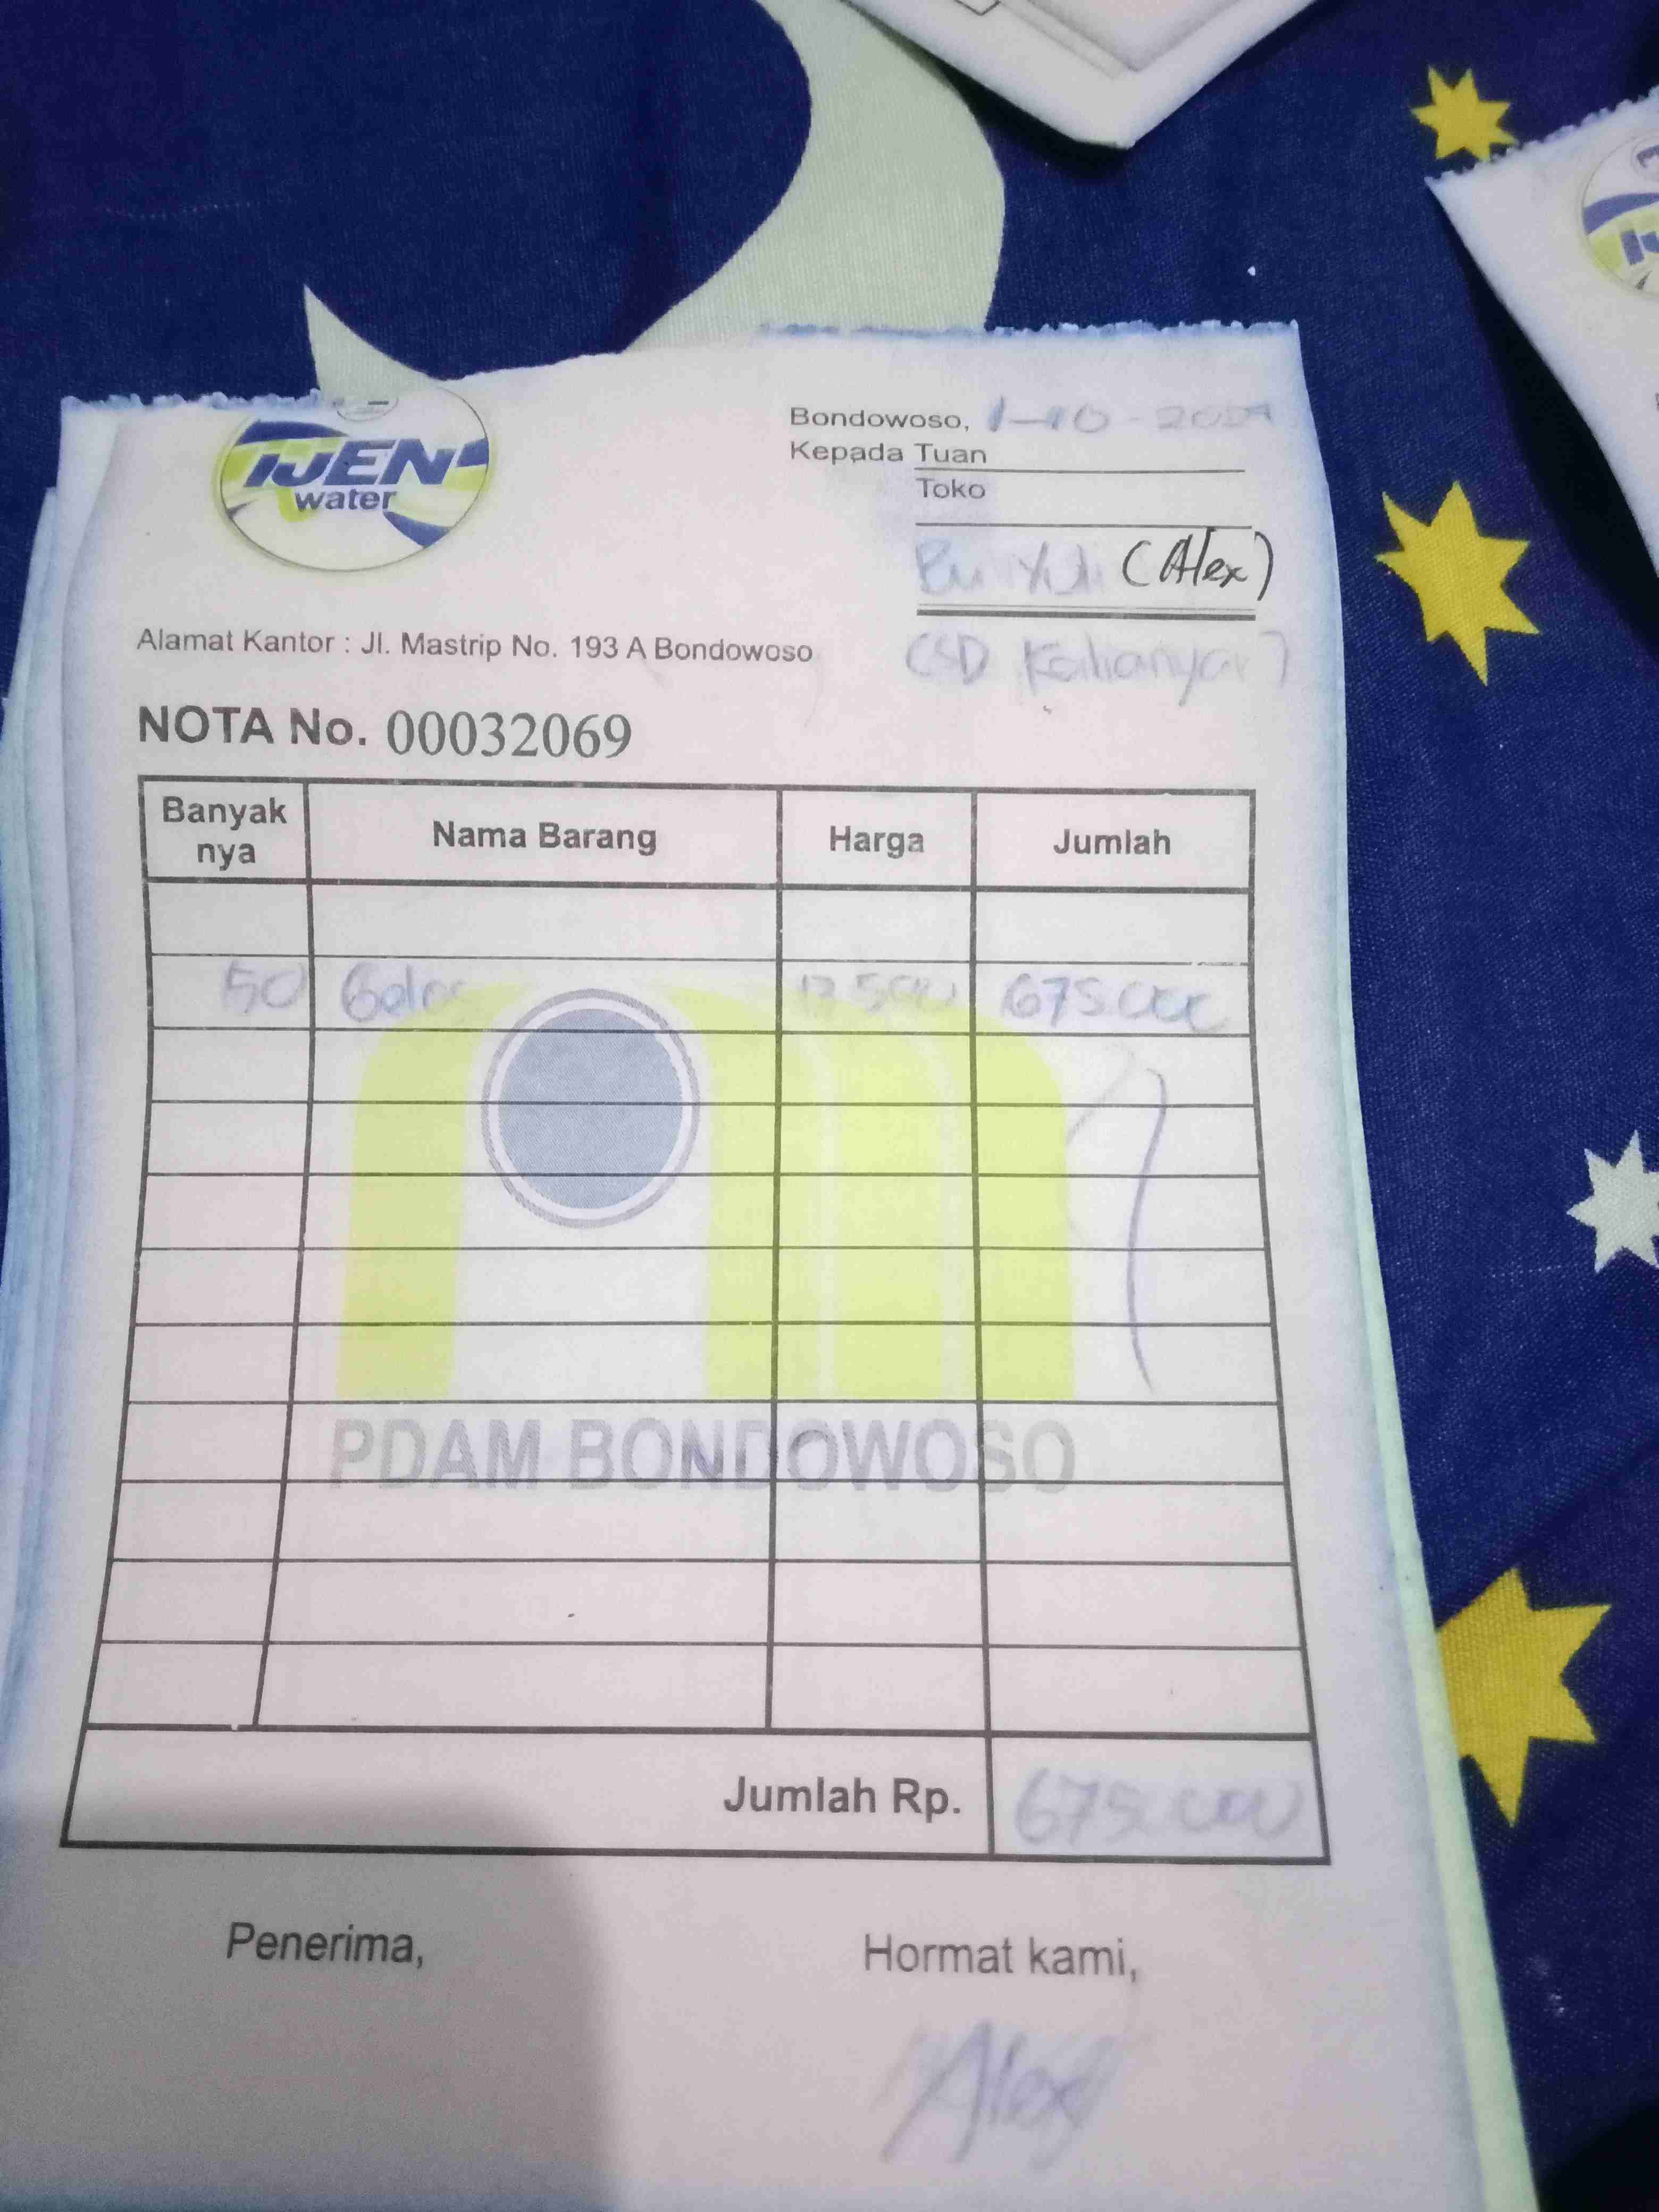 IJEN
water
Bondowoso, 1-10-2024
Kepada Tuan
Toko
Bu Yuli (Alex)
(SD Kalianyar)
Alamat Kantor : Jl. Mastrip No. 193 A Bondowoso
NOTA No. 00032069
Banyak nya Nama Barang Harga Jumlah
50 Gelas 13.500 675.000
PDAM BONDOWOSO
Jumlah Rp. 675.000
Penerima, Hormat kami,
Alex